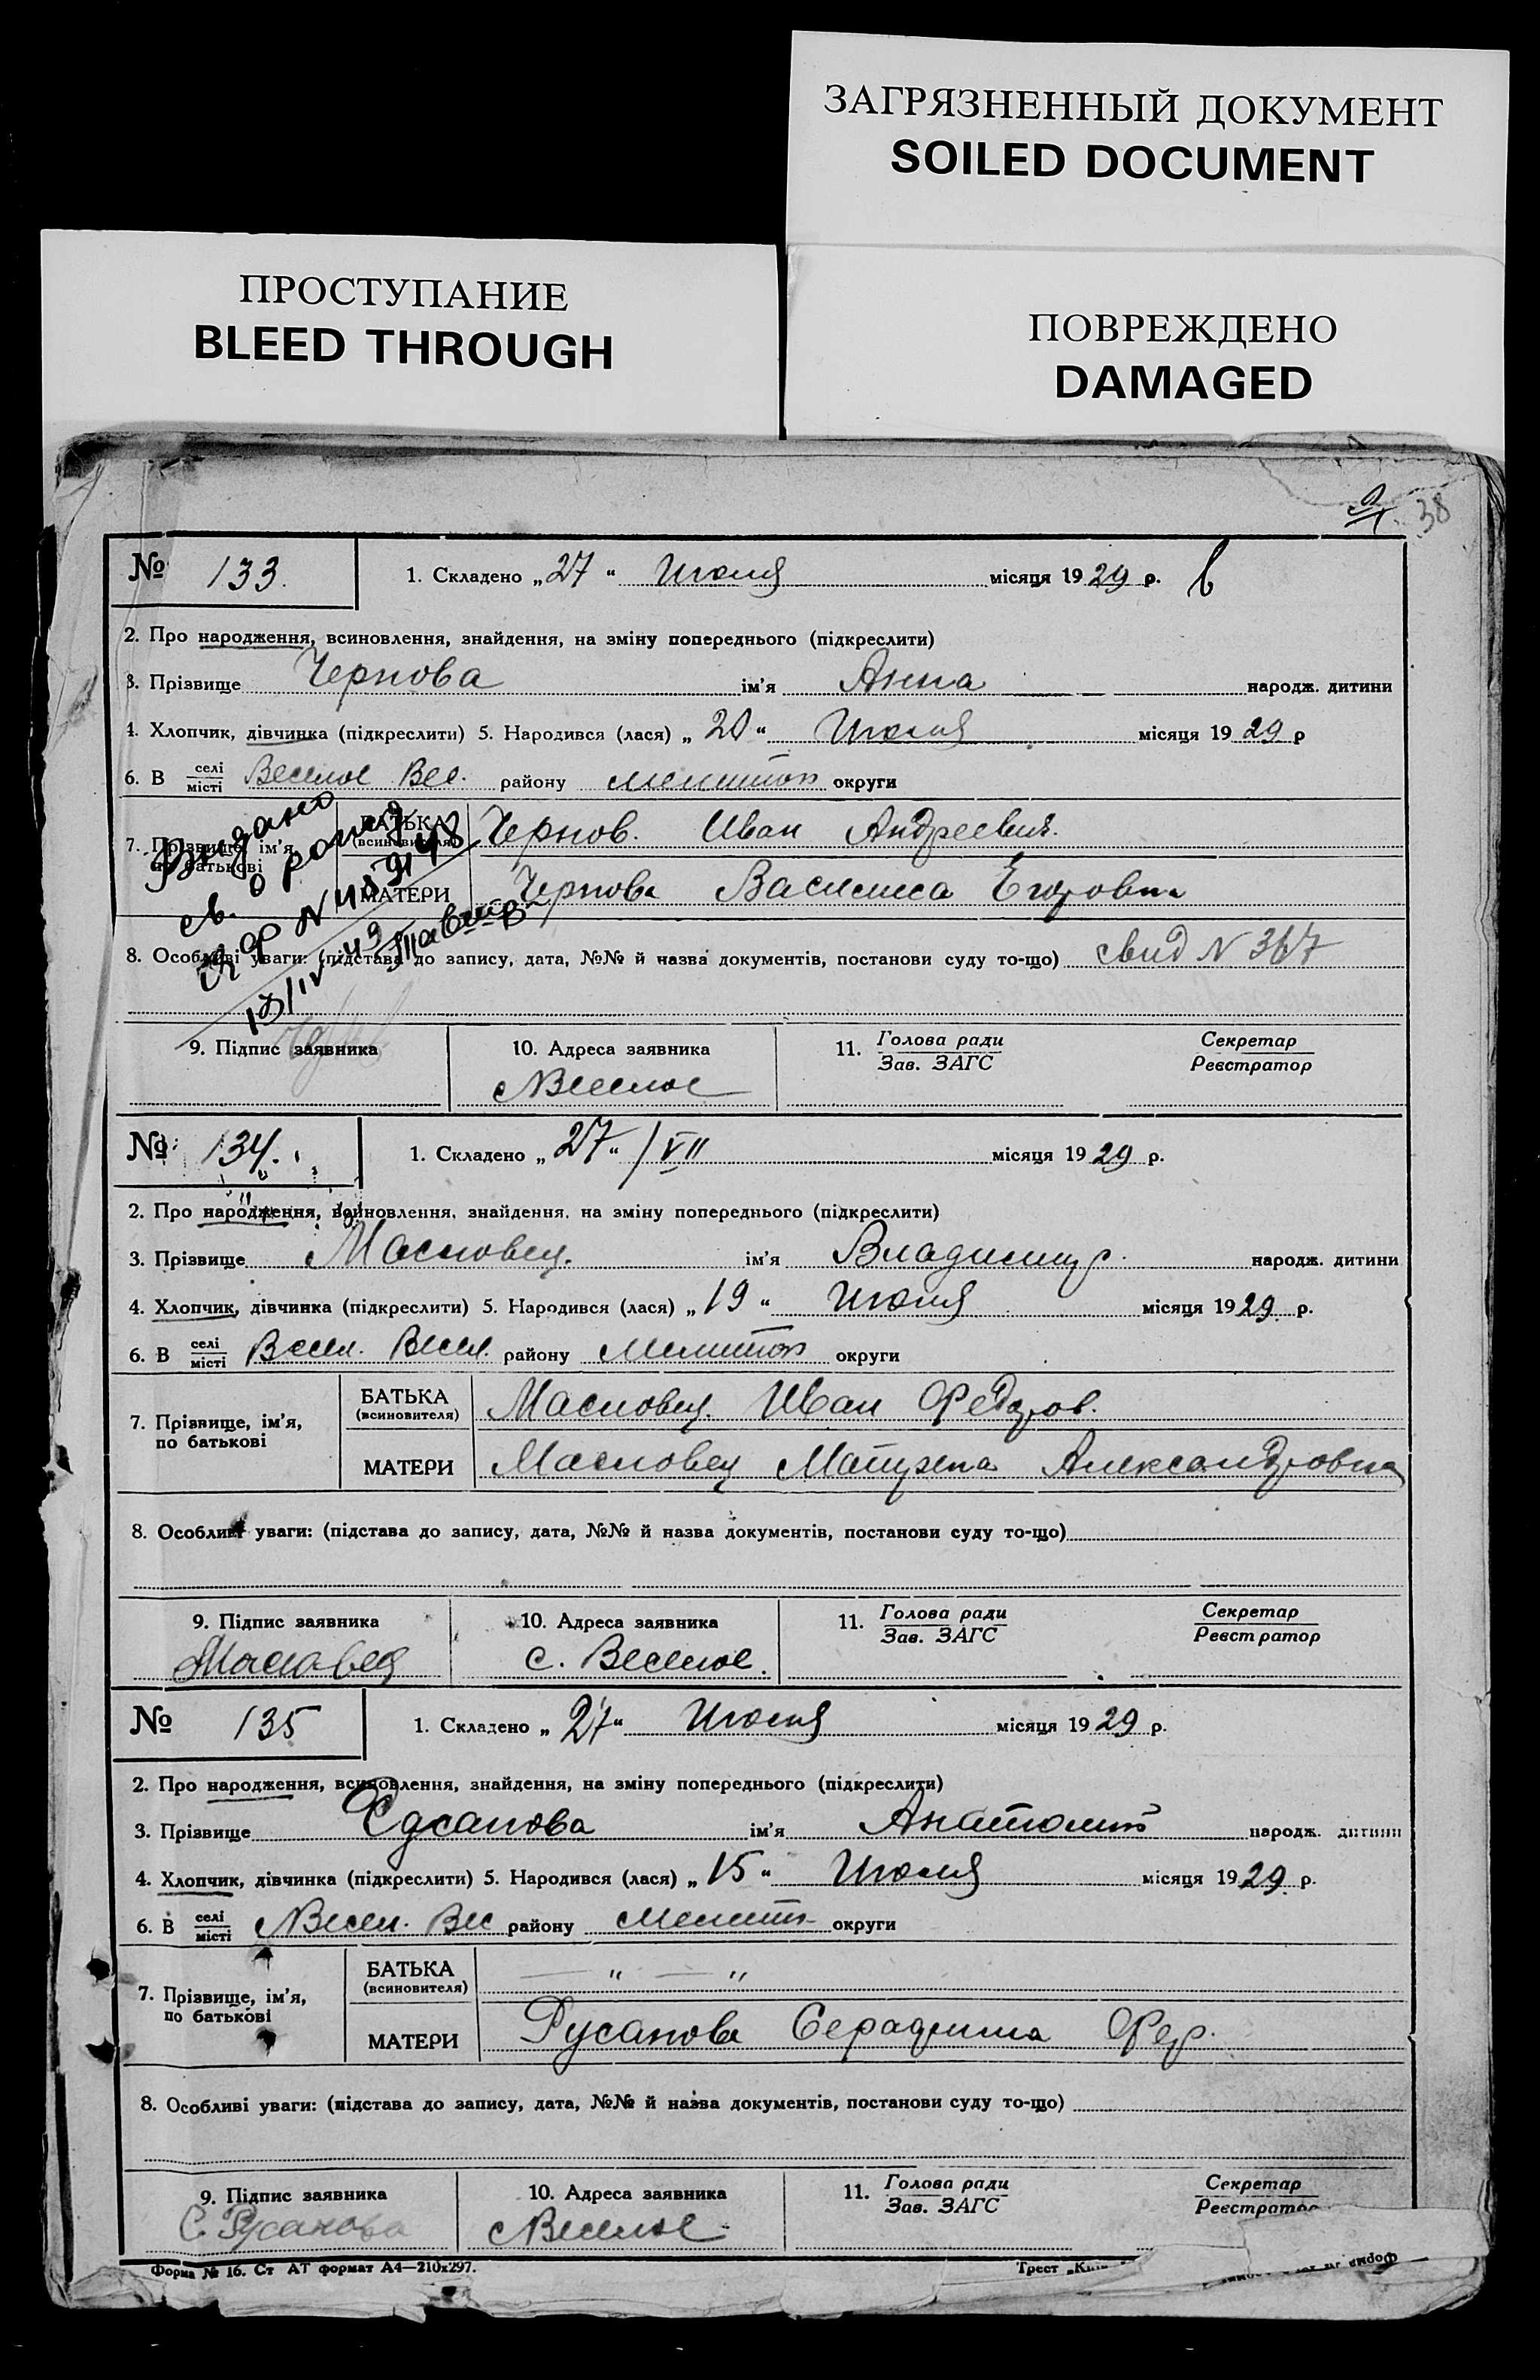 ЗАГРЯЗНЕННЫЙ ДОКУМЕНТ
SOILED DOCUMENT
ПРОСТУПАНИЕ
BLEED THROUGH
ПОВРЕЖДЕНО
DAMAGED
38
№ 133. 1. Складено „27“ Июля місяця 1929 р.
2. Про народження, всиновлення, знайдення, на зміну попереднього (підкреслити)
3. Прізвище Чернова ім'я Анна народж. дитини
4. Хлопчик, дівчинка (підкреслити) 5. Народився (лася) „20“ Июля місяця 1929 р
6. В селі/місті Веселое Вес. району Мелитоп округи
7. Прізвище, ім'я, по батькові
БАТЬКА (всиновителя) Чернов. Иван Андреевич.
МАТЕРИ Чернова Василиса Егоровна
Выдано
св. о рожд
13/IV 49
8. Особливі уваги: (підстава до запису, дата, №№ й назва документів, постанови суду то-що) свид N 367
9. Підпис заявника 10. Адреса заявника 11. Голова ради/Зав. ЗАГС Секретар/Реєстратор
Веселое
№ 134. 1. Складено „27“ /VII місяця 1929 р.
2. Про народження, всиновлення, знайдення, на зміну попереднього (підкреслити)
3. Прізвище Масловец. ім'я Владимир. народж. дитини
4. Хлопчик, дівчинка (підкреслити) 5. Народився (лася) „19“ Июля місяця 1929 р.
6. В селі/місті Весел. Весел. району Мелитоп округи
7. Прізвище, ім'я, по батькові
БАТЬКА (всиновителя) Масловец. Иван Федоров.
МАТЕРИ Масловец Матрена Александровна
8. Особливі уваги: (підстава до запису, дата, №№ й назва документів, постанови суду то-що)
9. Підпис заявника 10. Адреса заявника 11. Голова ради/Зав. ЗАГС Секретар/Реєстратор
Масловец с. Веселое.
№ 135 1. Складено „27“ Июля місяця 1929 р.
2. Про народження, всиновлення, знайдення, на зміну попереднього (підкреслити)
3. Прізвище ім'я Анатолий народж. дитини
4. Хлопчик, дівчинка (підкреслити) 5. Народився (лася) „15“ Июля місяця 1929 р.
6. В селі/місті Весел. Вес району Мелит округи
7. Прізвище, ім'я, по батькові
БАТЬКА (всиновителя) — „ — „
МАТЕРИ Русанова Серафима Фед.
8. Особливі уваги: (підстава до запису, дата, №№ й назва документів, постанови суду то-що)
9. Підпис заявника 10. Адреса заявника 11. Голова ради/Зав. ЗАГС Секретар
С. Русанова Веселое
Форма № 16. Ст АТ формат А4—210х297. Трест